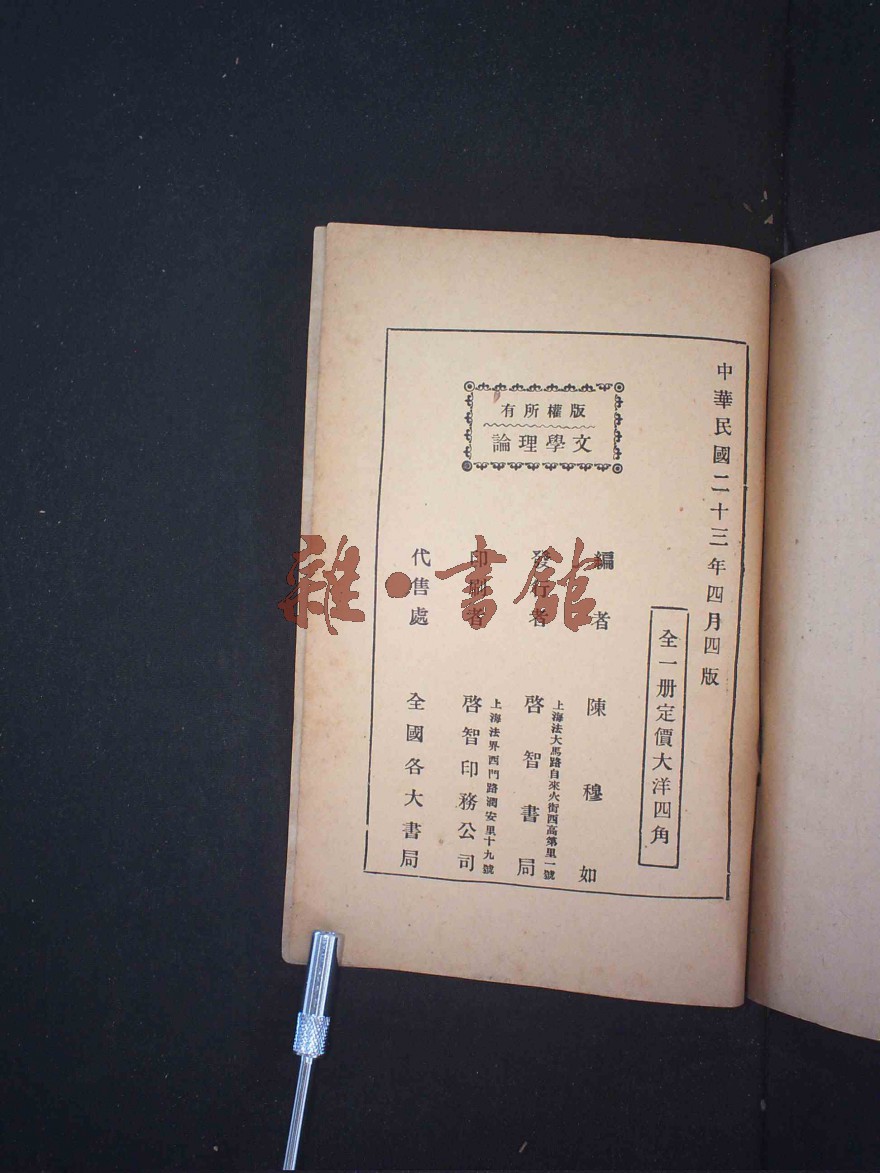 中華民國二十三年四月四版
全一册定價大洋四角
版權所有
文學理論
編者 陳穆如
上海法大馬路自來火街西高第里一號
發行者 啓智書局
上海法界西門路潤安里十九號
印刷者 啓智印務公司
代售處 全國各大書局
雜·書館